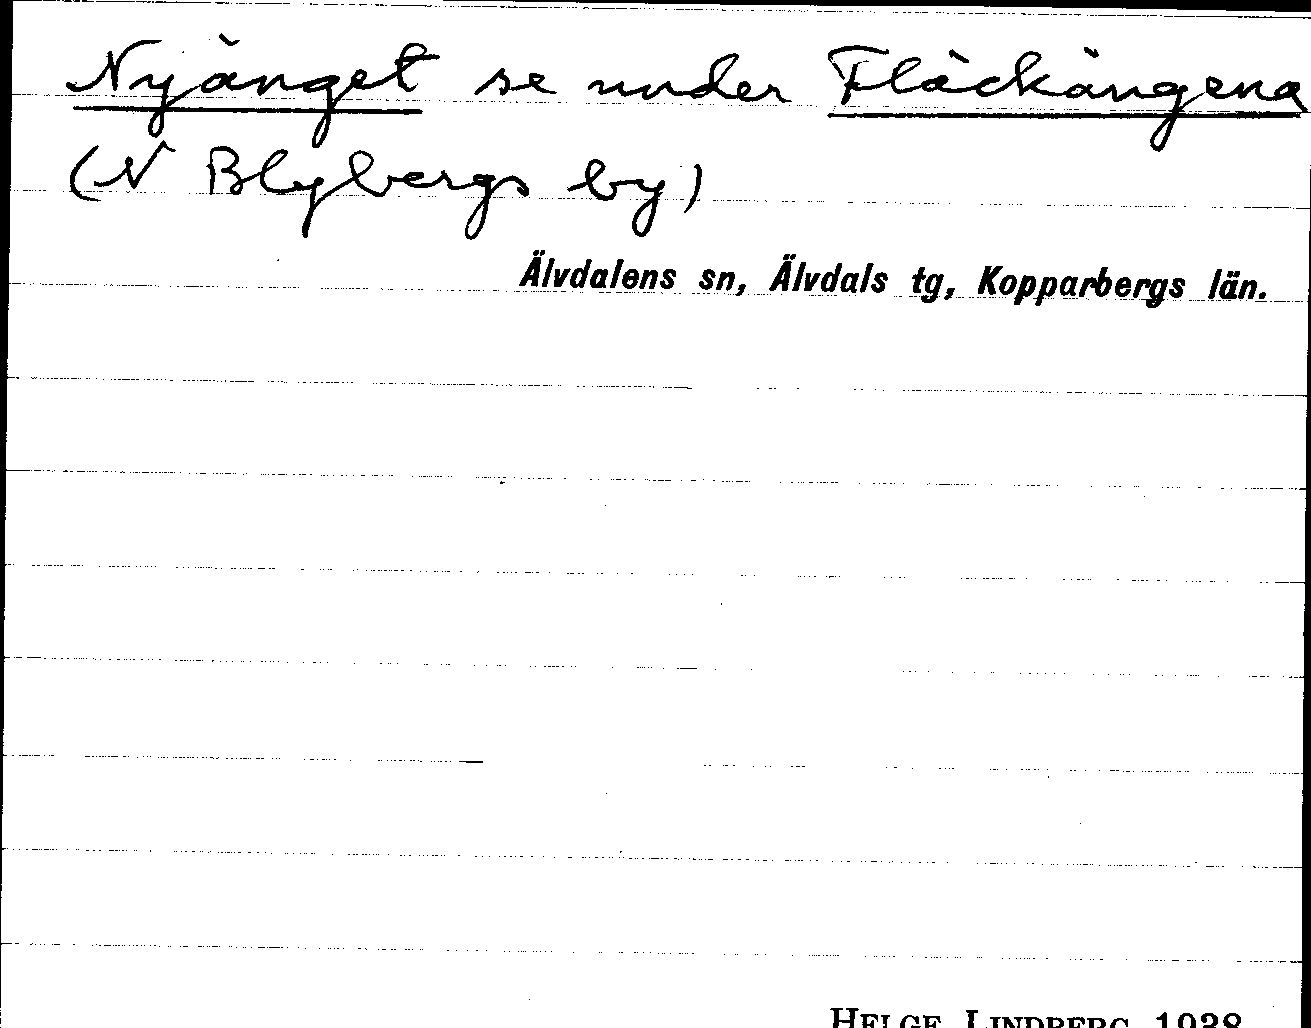 Nyänget se under Fläckängena
(N Blybergs by)
Älvdalens sn, Älvdals tg, Kopparbergs län.
HELGE LINDBERG 1938